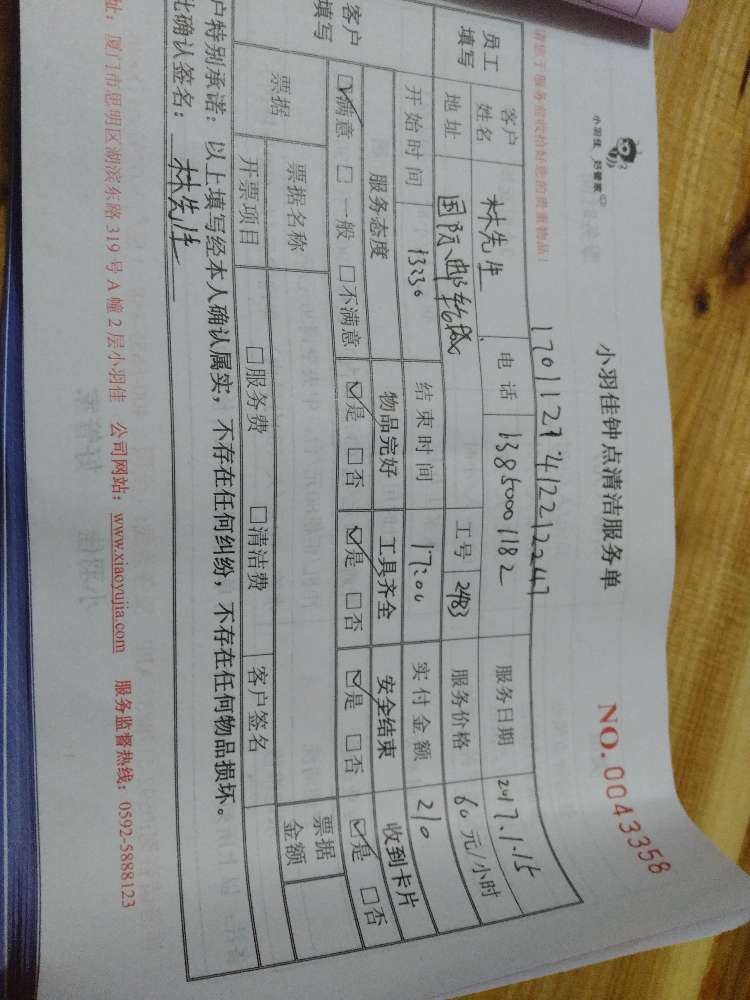 小羽佳 好管家
小羽佳钟点清洁服务单
NO.0043358
1701127412212247
员工填写
客户姓名 林先生 电话 13850001182 服务日期 2017.1.15
地址 国际邮轮城 工号 2483 服务价格 60元/小时
开始时间 13:30 结束时间 17:00 实付金额 210
客户填写
服务态度 物品完好 工具齐全 安全结束 收到卡片
☑满意 □一般 □不满意 ☑是 □否 ☑是 □否 ☑是 □否 ☑是 □否
票据 票据名称 票据金额
开票项目 □服务费 □清洁费 客户签名
户特别承诺：以上填写经本人确认属实，不存在任何纠纷，不存在任何物品损坏。
此确认签名：林先生
址：厦门市思明区湖滨东路319号A幢2层小羽佳 公司网站：www.xiaoyujia.com 服务监督热线：0592-5888123